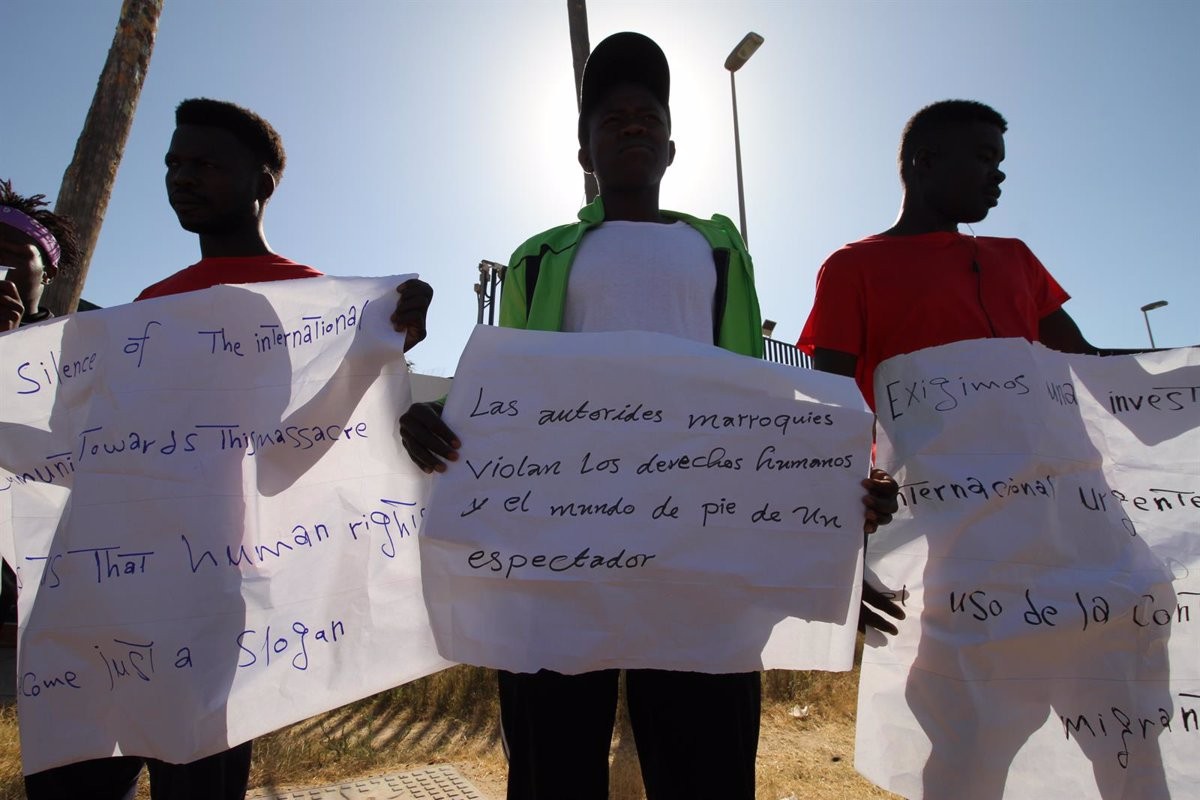 Silence of The international
Towards This massacre
That human rights
just a Slogan
Las autorides marroquies
violan Los derechos humanos
y el mundo de pie de un
espectador
Exigimos una invest
nternacional urgente
uso de la con
migran